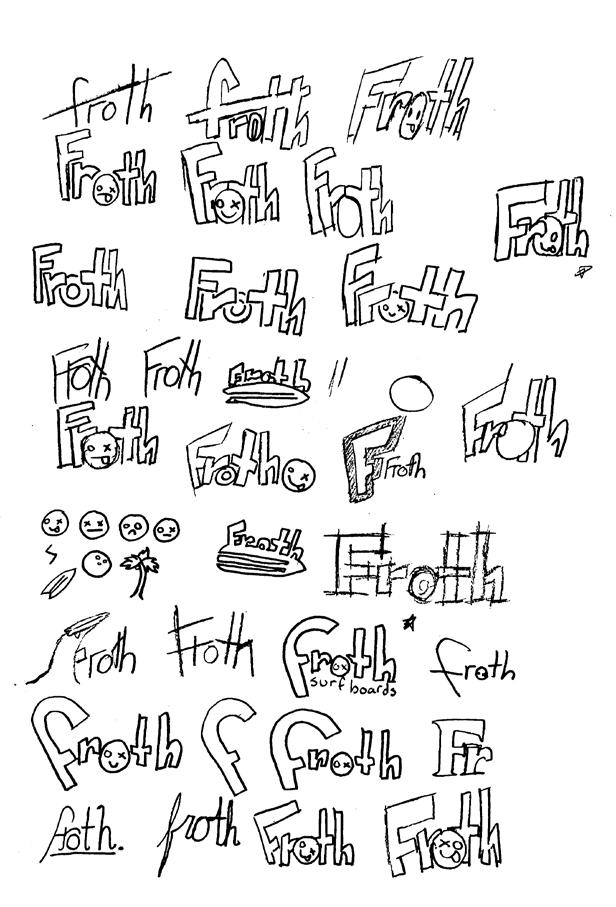 froth froth Froth
Froth Froth Froth Froth
Froth Froth Froth
Froth Froth Froth
Froth Froth F Froth Froth
Froth Froth
Froth Froth froth froth
surf boards
froth f froth Fr
froth. froth Froth Froth